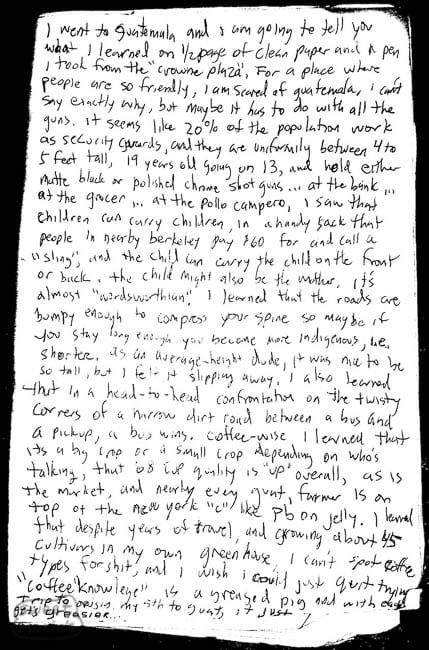 I went to Guatemala and I am going to tell you
what I learned on 1/2 page of clean paper and a pen
I took from the "crowne plaza". For a place where
people are so friendly, I am scared of guatemala, I can't
say exactly why, but maybe it has to do with all the
guns. it seems like 20% of the population work
as security guards, and they are uniformly between 4 to
5 feet tall, 19 years old going on 13, and hold either
matte black or polished chrome shotguns... at the bank...
at the grocer... at the pollo campero, I saw that
children can carry children, in a handy sack that
people in nearby berkeley pay $60 for and call a
"sling", and the child can carry the child on the front
or back. the child might also be the mother. it's
almost "wordsworthian". I learned that the roads are
bumpy enough to compress your spine so maybe if
you stay long enough you become more indigenous, i.e.
shorter. as an average-height dude, it was nice to be
so tall, but I felt it slipping away. I also learned
that in a head-to-head confrontation on the twisty
corners of a narrow dirt road between a bus and
a pickup, a bus wins. coffee-wise I learned that
its a big crop or a small crop depending on who's
talking, that '08 cup quality is "up" overall, as is
the market, and nearly every guat. farmer is on
top of the new york "c" like pb on jelly. I learned
that despite years of travel, and growing about 45
cultivars in my own greenhouse, I can't spot coffee
types for shit, and I wish I could just quit trying
"coffee knowlege" is a greased pig and with each
trip to origin, my 5th to guat, it just
gets greasier...